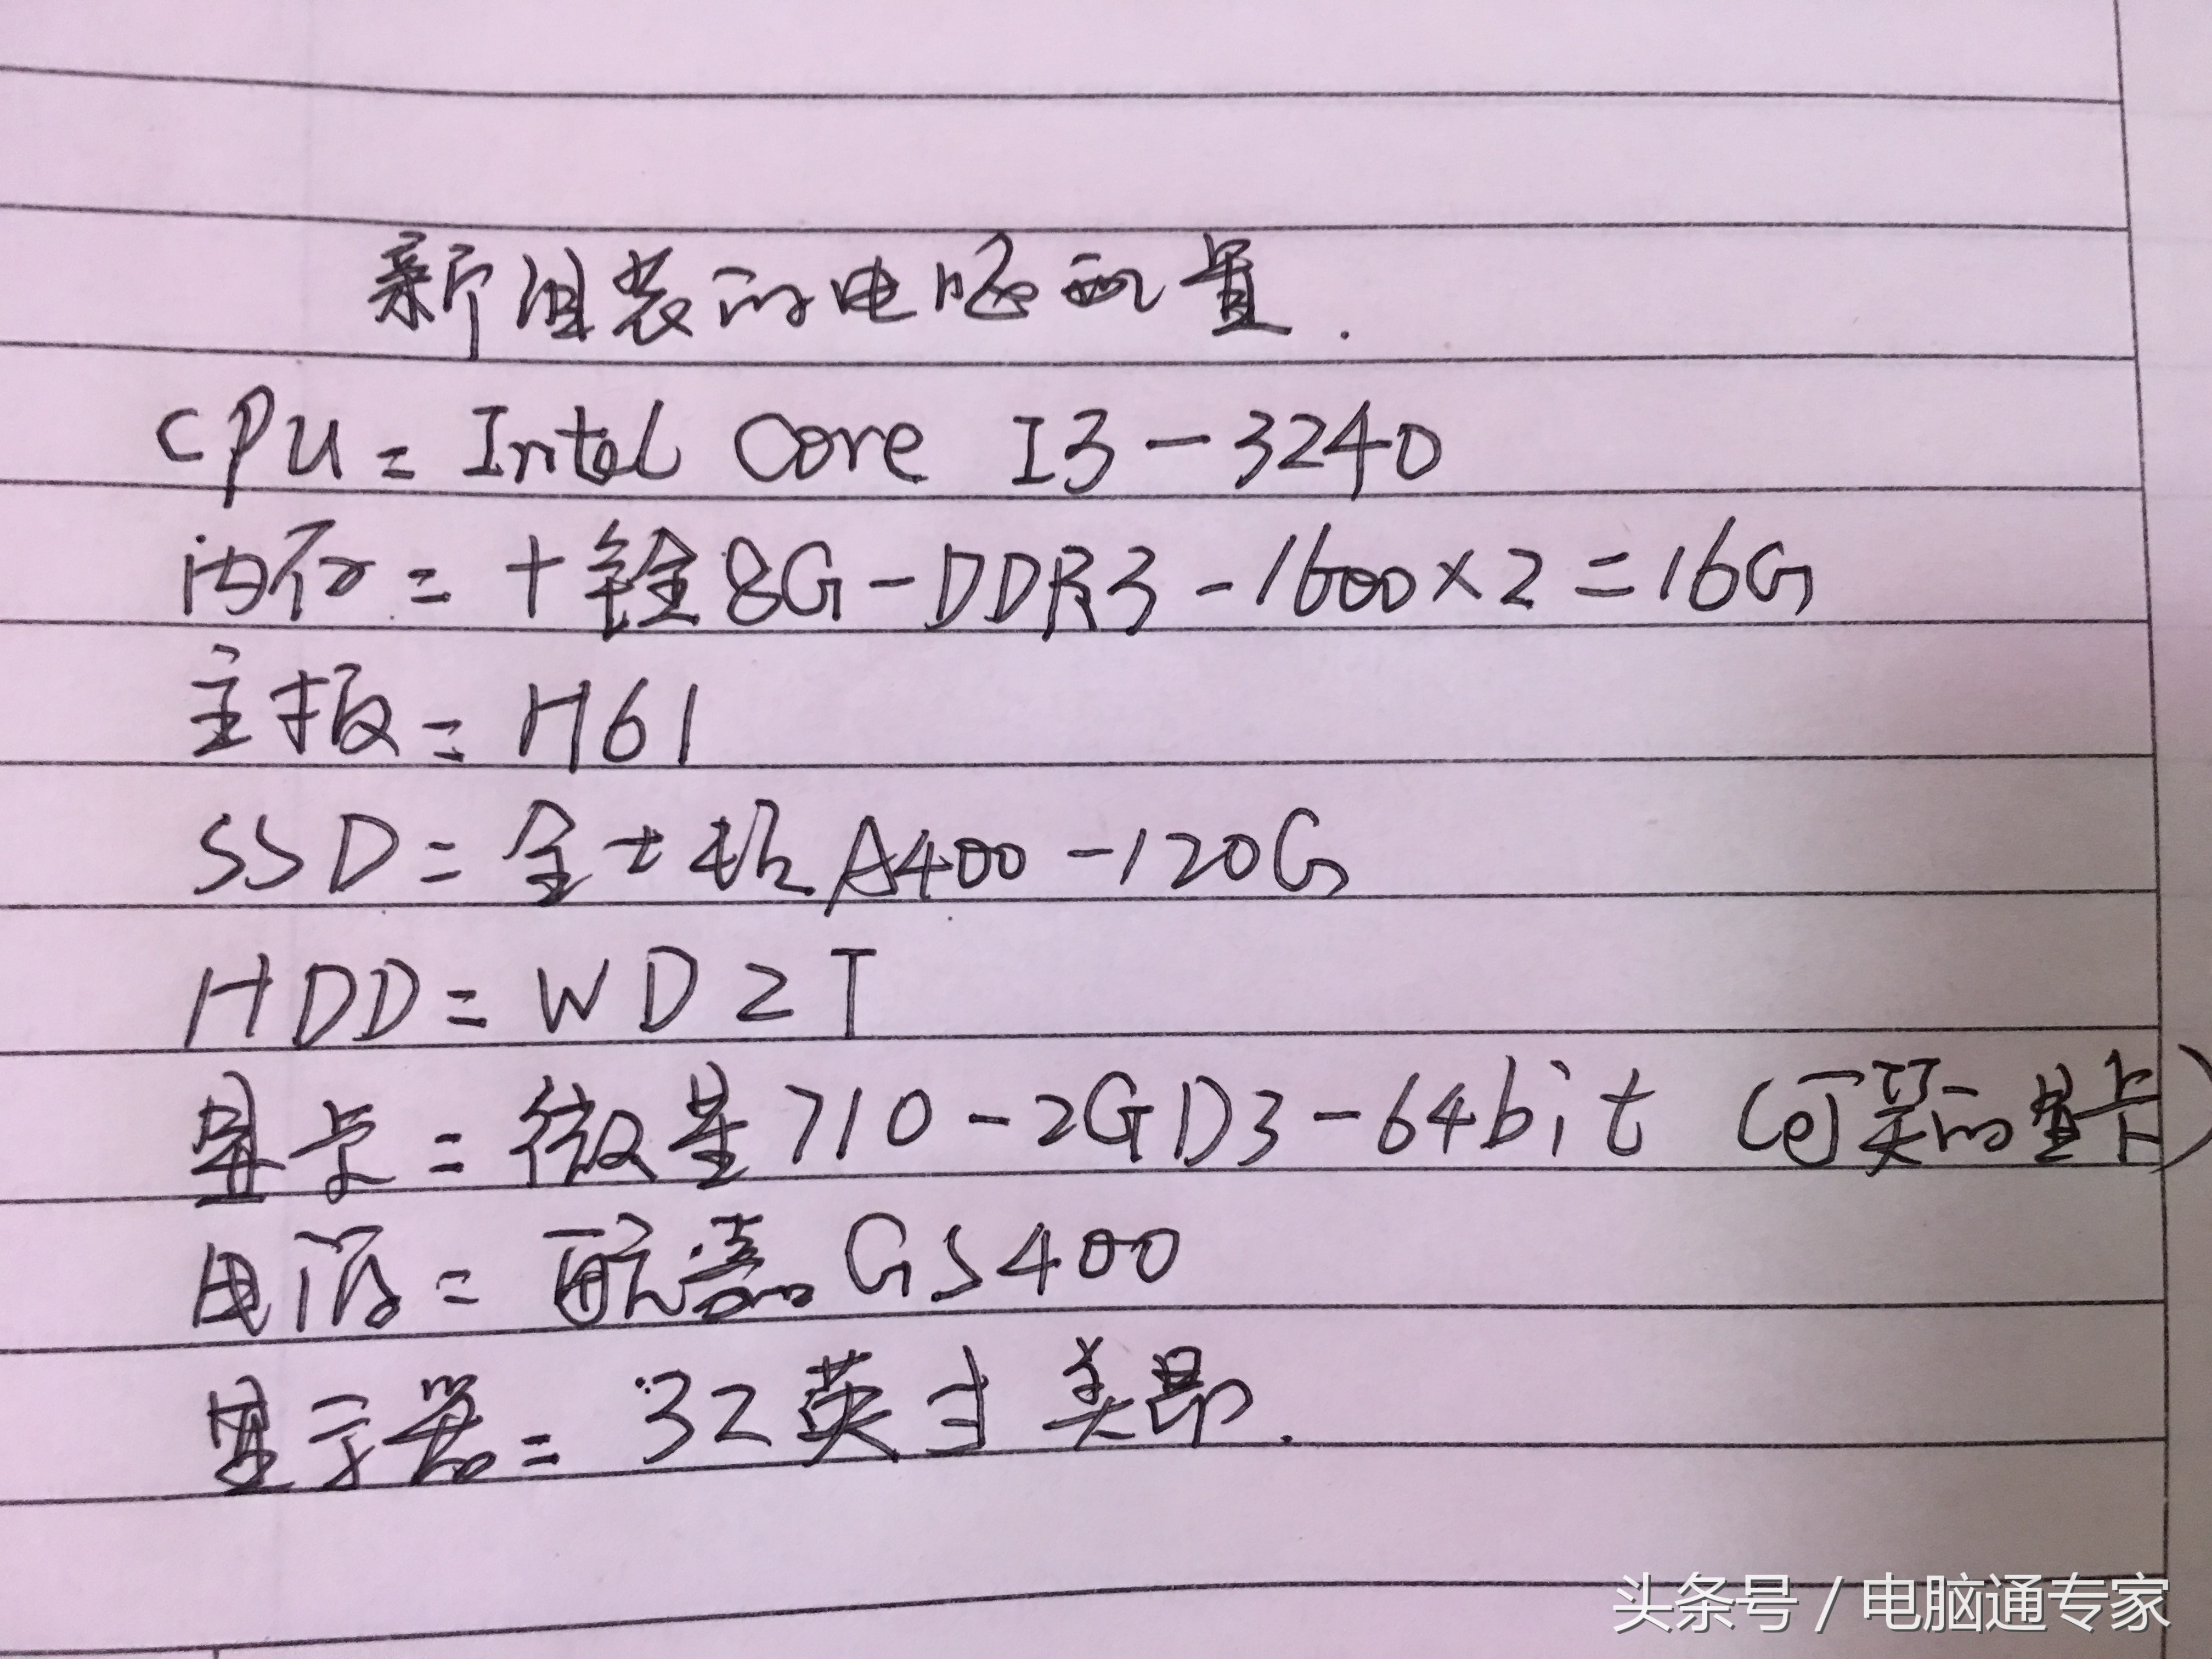 新组装的电脑配置.
CPU=Intel Core I3-3240
内存=十铨8G-DDR3-1600×2=16G
主板=H61
SSD=金士顿A400-120G
HDD=WD 2T
显卡=微星710-2GD3-64bit (可笑的显卡)
电源=航嘉GS400
显示器=32英寸美昂.
头条号 / 电脑通专家